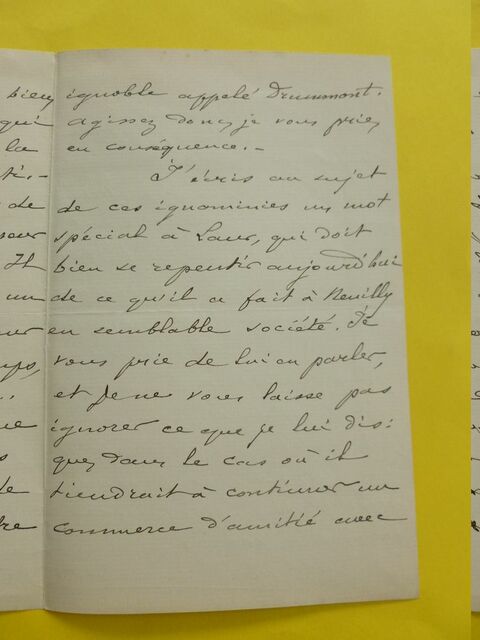 bien
qui
la
de
It
un
de
ignoble appelé Drummont.
agissez donc, je vous prie,
en conséquence. –
J'écris au sujet
de ces ignominies un mot
spécial à Laur, qui doit
bien se repentir aujourd'hui
de ce qu'il a fait à Neuilly
en semblable société. Je
vous prie de lui en parler,
et je ne vous laisse pas
ignorer ce que je lui dis:
que, dans le cas où il
tiendrait à continuer un
commerce d'amitié avec